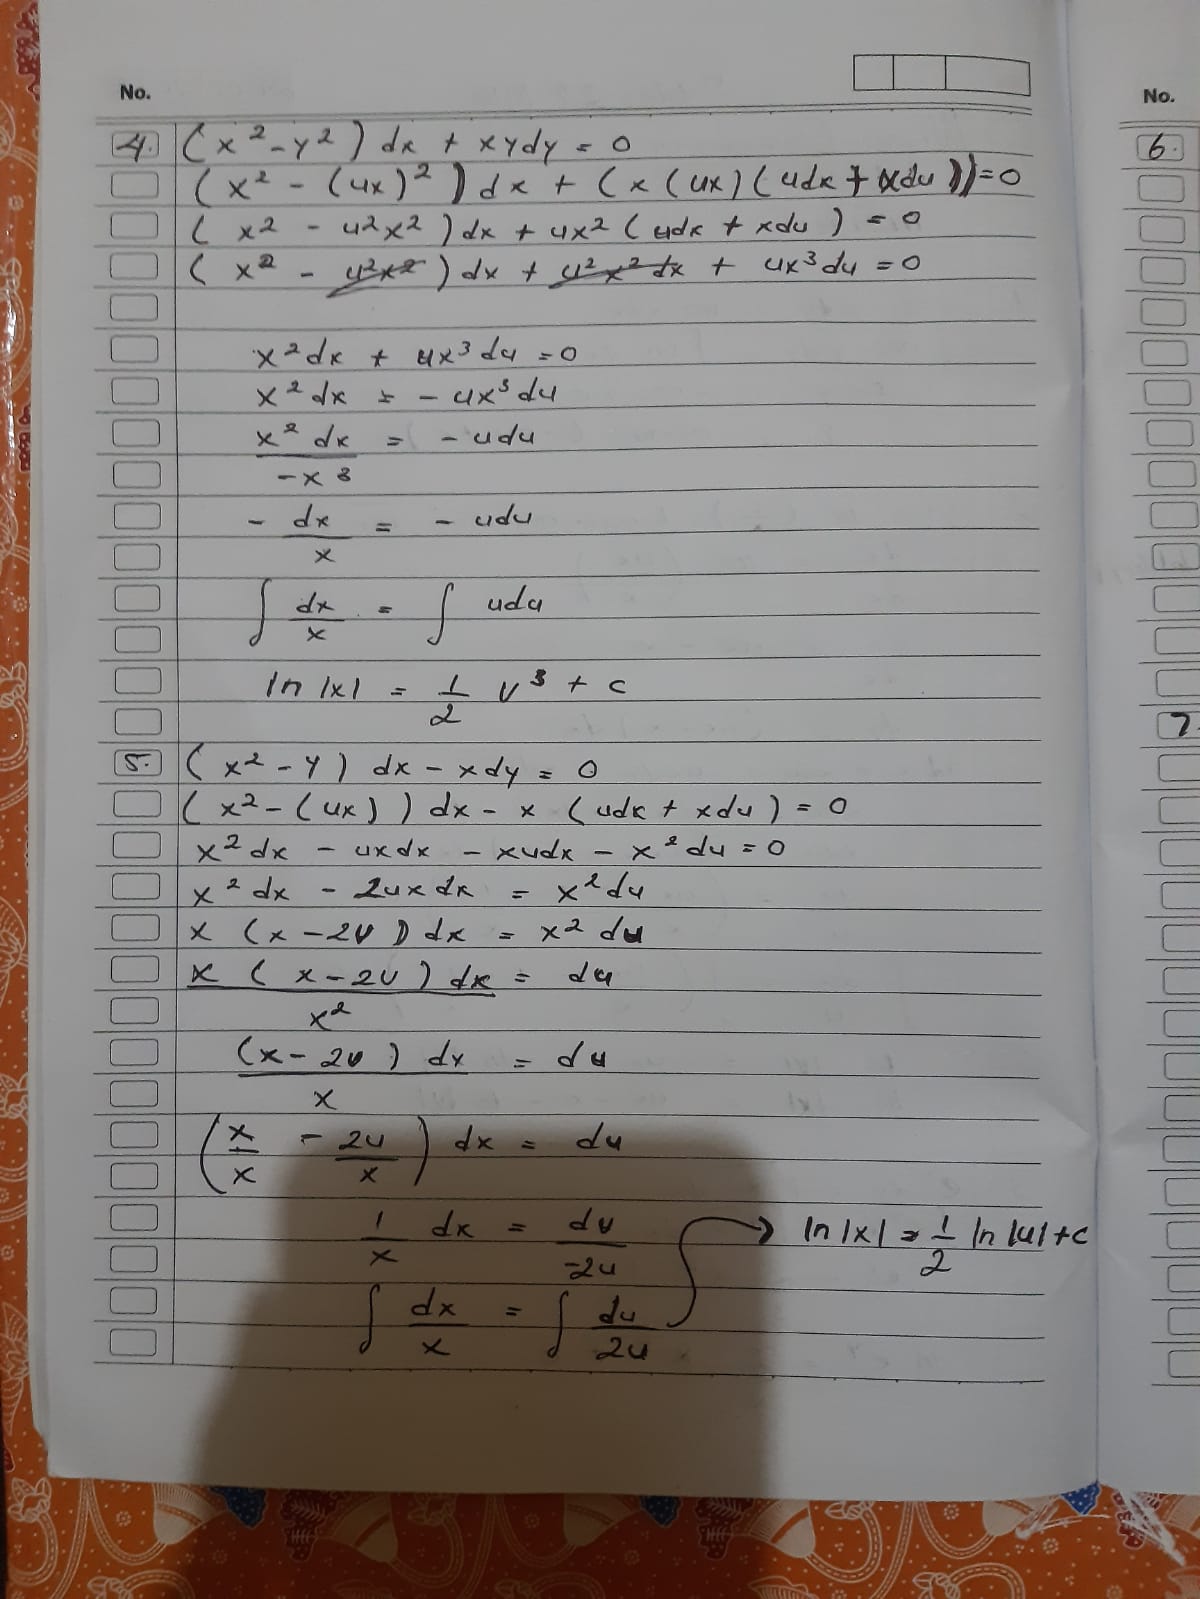 No.
No.
4. (x² - y²) dx + xydy = 0
6.
(x² - (ux)²) dx + (x (ux) (udx + xdu)) = 0
(x² - u²x²) dx + ux² (udx + xdu) = 0
(x² - u²x²) dx + u²x²dx + ux³du = 0
x²dx + ux³du = 0
x²dx = - ux³du
x²dx / -x³ = - udu
- dx/x = - udu
∫ dx/x = ∫ udu
ln |x| = 1/2 u³ + c
7.
5. (x² - y) dx - xdy = 0
(x² - (ux)) dx - x (udx + xdu) = 0
x²dx - uxdx - xudx - x²du = 0
x²dx - 2uxdx = x²du
x (x - 2u) dx = x² du
x (x - 2u) dx / x² = du
(x - 2u) dx / x = du
(x/x - 2u/x) dx = du
1/x dx = du/-2u
∫ dx/x = ∫ du/2u → ln |x| = 1/2 ln |u| + c